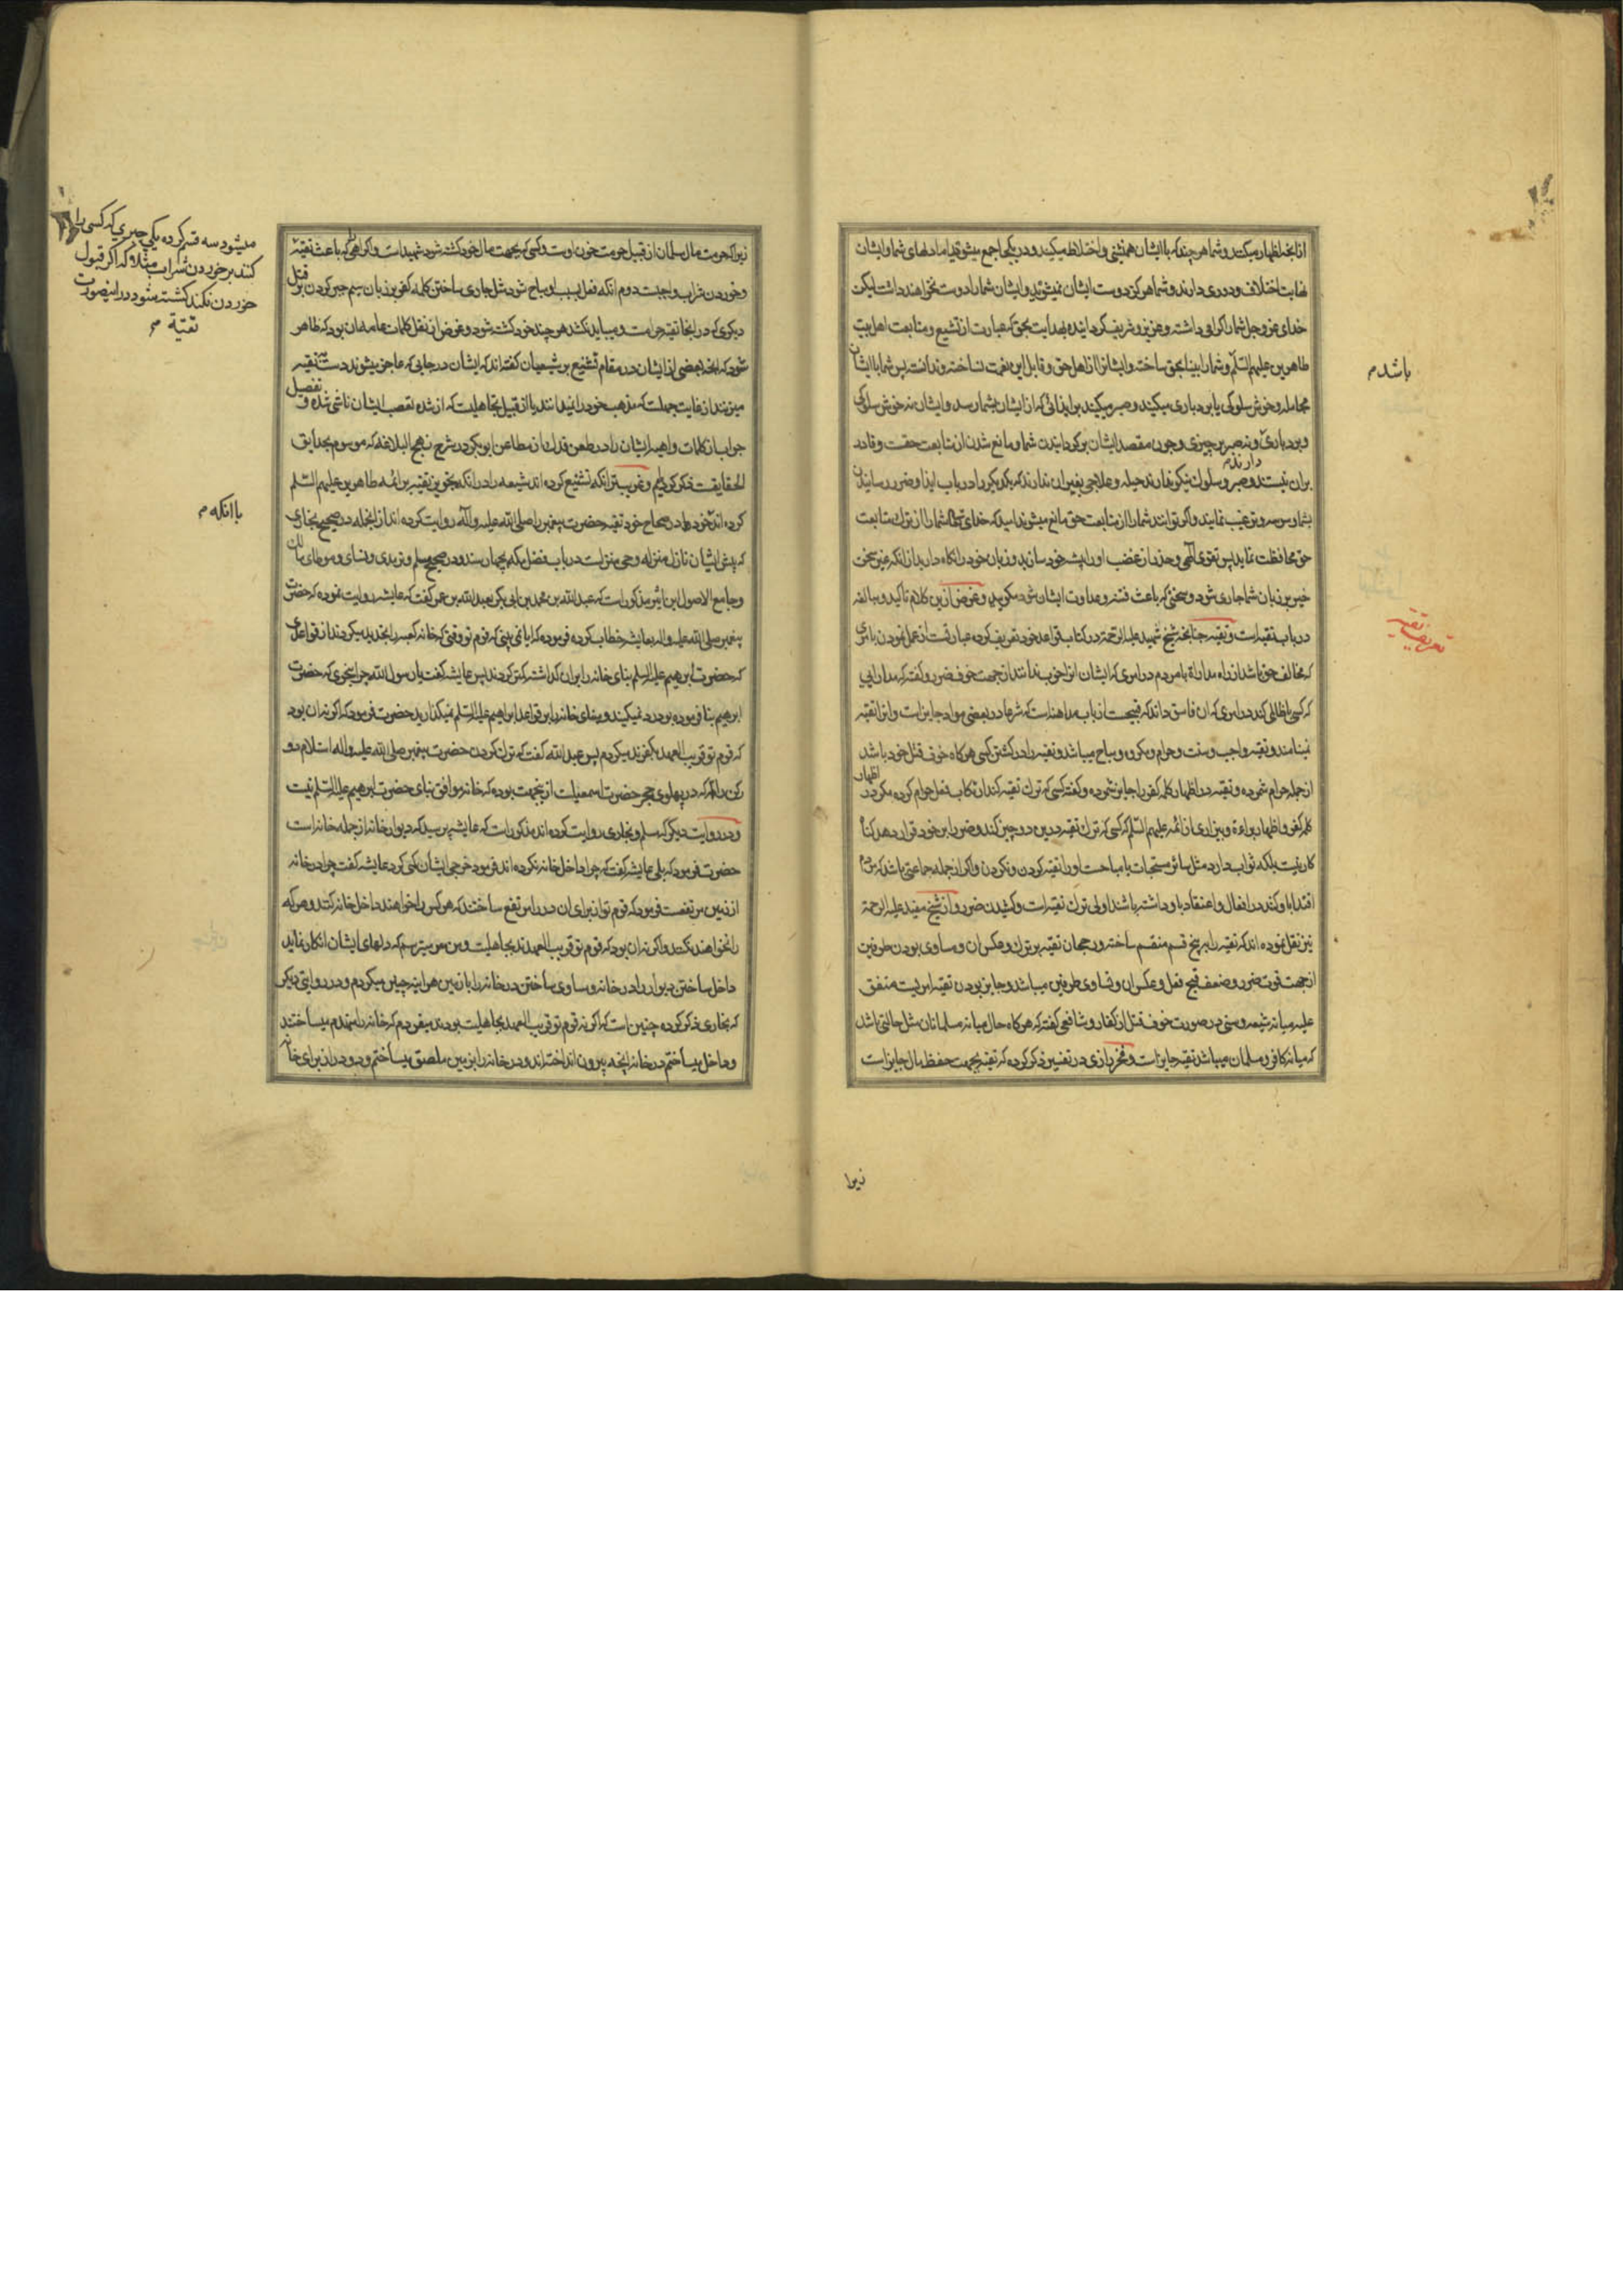 ازانجه اظهار میکنند و شما هر چند که با ایشان همنشینی و اختلاط میکنید و در یکجا جمع میشوید اما دلهای شما و ایشان
غایت اختلاف و دوری دارند و شما هرکز دوست ایشان نمیشوید و ایشان شما را دوست نخواهند داشت لیکن
خدای عز و جل شما را کرامی داشته و عزیز و شریف کردانیده بهدایت بحق که عبارت از تشیع و متابعت اهل بیت
طاهرین علیهم السّلم و شما را بینا بحق ساخته و ایشانرا از اهل حق و قابل این نعمت نساخته و ندانسته پس شما با ایشان
باشد م
مجامله و خوش سلوکی یا بردباری میکنید و صبر میکنید بر ایذائی که از ایشان بشما رسد و ایشان نه خوش سلوکی
و بردباری و نه صبر بر چیزی و چون مقصد ایشان برکردانیدن شما و مانع شدن از متابعت حقست و قادر
بران نیستند و صبر و سلوک نیکو ندارند حیله و علاجی بغیر ان ندارند که یکدیکر را در باب ایذا و ضرر رسانیدن
دارند م
بشما وسوسه و ترغیب نمایند و اکر توانند شما را از متابعت حق مانع میشوند امید که خدای تعالی شما را از ترک متابعت
حق محافظت نماید پس تقوی الهی و حذر از غضب او را پیشه خود سازید و زبان خود را نکاه دارید از انکه غیر سخن
خیر بر زبان شما جاری شود و سخنی که باعث فتنه و عداوت ایشان شود مکویید و غرض ازین کلام تاکید و مبالغه
در باب تقیه است و تقیه چنانچه شیخ شهید علیه الرحمة در کتاب قواعد خود تعریف کرده عبارتست از عمل نمودن بامری
تعریف تقیه
که مخالف حق باشد از راه مداراة با مردم در امری که ایشان انرا خوب ندانند از جهت خوف ضرر و کفته که مدارایی
که کسی با ظالمی کند در امری که ان فاسق داند که قبیحست از باب مداهنه است که شرعا در بعضی مواد جایز است و انرا تقیه
نمینامند و تقیه واجب و سنت و حرام و مکروه و مباح میباشد و تقیه را در کشتن کسی هرکاه خوف قتل خود باشد
از جمله حرام شمرده و تقیه در اظهار کلمه کفر را جایز شمرده و کفته کسی که ترک تقیه کند ارتکاب فعل حرام کرده مکر در اظهار
کلمه کفر و اظهار براءة و بیزاری از ائمه علیهم السّلم که کسی که ترک تقیه درین دو چیز کند و ضرر را بر خود قرار دهد کناه
کار نیست بلکه ثواب دارد مثل سائر مستحبات یا مباحست او را تقیه کردن و نکردن و اکر از جمله جماعتی باشد که مردم
اقتدا باو کنند در افعال و اعتقاد باو داشته باشند اولی ترک تقیه است و کشیدن ضرر و از شیخ مفید علیه الرحمة
نیز نقل نموده اند که تقیه را بر پنج قسم منقسم ساخته و رجحان تقیه بر ترک و عکس ان و مساوی بودن طرفین
از جهت قوت ضرر و ضعف قبح فعل و عکس ان و تساوی طرفین میباشد و جایز بودن تقیه امریست متفق
علیه میانه شیعه و سنی در صورت خوف قتل از کفار و شافعی کفته که هرکاه حال میانه مسلمانان مثل حالتی باشد
که میانه کافر و مسلمان میباشد تقیه جایز است و فخر رازی در تفسیر ذکر کرده که تقیه بجهت حفظ مال جایز است
زیرا
زیرا که حرمت مال مسلمان از قبیل حرمت خون اوست و کسی که بجهت مال خود کشته شود شهید است و اکراهی که باعث تقیه
میشود سه قسم کرده یکی جبری که کسی را
کنند بر خوردن شراب مثلا که اکر قبول
خوردن نکند کشته میشود در اینصورت
تقیة م
و خوردن شراب واجبست دوم انکه فعل بسبب او مباح شود مثل جاری ساختن کلمه کفر بر زبان سیم جبر کردن بر قتل
دیکری که در اینجا تقیه حرامست و میباید نکشد هر چند خود کشته شود و غرض از نقل کلمات عامه ان بود که ظاهر
شود که انچه بعضی از ایشان در مقام تشنیع بر شیعیان کفته اند که ایشان در جایی که عاجز میشوند دست به تقیه
میزنند از غایت جهلست که مذهب خود را نیز ندانند یا از قبیل تجاهلیست که از شده تعصب ایشان ناشی شده و تفصیل
جواب از کلمات واهیه ایشان را در طعن فدک از مطاعن ابو بکر در شرح نهج البلاغه که موسوم بحدایق
الحقایقست ذکر کرده ایم و غریب‌تر انکه تشنیع کرده اند شیعه را در انکه تجویز تقیه بر ائمه طاهرین علیهم السّلم
کرده اند خود ها در صحاح خود تقیه حضرت پیغمبر را صلی الله علیه و آله روایت کرده اند از انجمله در صحیح بخاری
با انکه م
که پیش ایشان نازل منزله وحی منزلست در باب فضل مکه بچهار سند و در صحیح مسلم و ترمذی و نسای و موطای مالک
و جامع الاصول ابن اثیر مذکور است که عبد الله بن محمد بن ابی بکر بعبد الله بن عمر کفت که عایشه روایت نموده که حضرت
پیغمبر صلی الله علیه و اله بعایشه خطاب کرده فرموده که ایا نمی بینی که قوم تو وقتی که خانه کعبه را تجدید میکردند از قواعدی
که حضرت ابرهیم علیه السلم بنای خانه را بران کذاشته کمتر کردند پس عایشه کفت یا رسول الله چرا بنحوی که حضرت
ابرهیم بنا فرموده بود رد نمیکنید و بنای خانه را بر قواعد ابراهیم علیه السّلم نمیکذارید حضرت فرمود که اکر نه ان بود
که قوم تو قریب العهد بکفرند میکردم پس عبد الله کفت که ترک کردن حضرت پیغمبر صلی الله علیه و اله استلام دو
رکن را که در پهلوی حجر حضرت اسمعیلست ازینجهت بوده که خانه موافق بنای حضرت ابرهیم علیه السّلم نیست
و در روایت دیکر که مسلم و بخاری روایت کرده اند مذکور است که عایشه پرسید که دیوار خانه از جمله خانه است
حضرت فرمود که بلی عایشه کفت که چرا داخل خانه نکرده اند فرمود خرجی ایشان کمی کرد عایشه کفت چرا در خانه
از زمین مرتفعست فرمود که قوم تو از برای ان در را مرتفع ساختند که هر کس را خواهند داخل خانه کنند و هر که
را نخواهند نکنند و اکر نه ان بود که قوم تو قریب العهدند بجاهلیت و من میترسم که دلهای ایشان انکار نماید
داخل ساختن دیوار را در خانه و مساوی ساختن در خانه را با زمین هر اینه چنین میکردم و در روایتی دیکر
که بخاری ذکر کرده چنین است که اکر نه قوم تو قریب العهد بجاهلیت بودند میفرمودم که خانه را منهدم میساختند
و داخل میساختم در خانه انچه بیرون انداخته اند و در خانه را بزمین ملصق میساختم و دو در از برای خانه